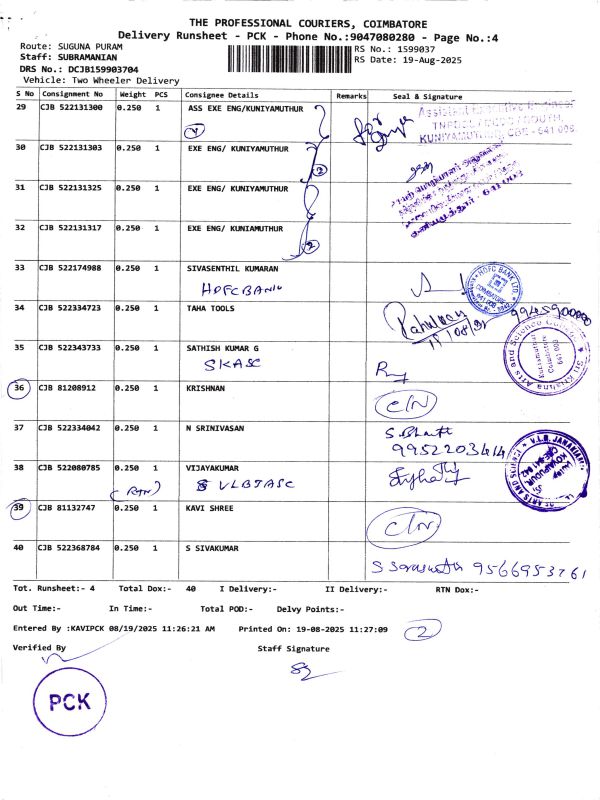 THE PROFESSIONAL COURIERS, COIMBATORE
Delivery Runsheet - PCK - Phone No.:9047080280 - Page No.:4
Route: SUGUNA PURAM
RS No.: 1599037
Staff: SUBRAMANIAN
RS Date: 19-Aug-2025
DRS No.: DCJB159903704
Vehicle: Two Wheeler Delivery
S No Consignment No Weight PCS Consignee Details Remarks Seal & Signature
29 CJB 522131300 0.250 1 ASS EXE ENG/KUNIYAMUTHUR
KUNIYAMUTHUR, CBE - 641 008
30 CJB 522131303 0.250 1 EXE ENG/ KUNIYAMUTHUR
2
31 CJB 522131325 0.250 1 EXE ENG/ KUNIYAMUTHUR
32 CJB 522131317 0.250 1 EXE ENG/ KUNIAMUTHUR
2
33 CJB 522174988 0.250 1 SIVASENTHIL KUMARAN
HDFC BANK
HDFC BANK LTD.
COIMBATORE
34 CJB 522334723 0.250 1 TAHA TOOLS
35 CJB 522343733 0.250 1 SATHISH KUMAR G
SKASC
Sri Krishna Arts and Science College
Kuniamuthur
Coimbatore
641 008
36 CJB 81208912 0.250 1 KRISHNAN
C/N
37 CJB 522334042 0.250 1 N SRINIVASAN
9952203414
38 CJB 522080785 0.250 1 VIJAYAKUMAR
(RTN) VLBJASC
39 CJB 81132747 0.250 1 KAVI SHREE
C/N
40 CJB 522368784 0.250 1 S SIVAKUMAR
S Saraswathi 9566953761
Tot. Runsheet:- 4 Total Dox:- 40 I Delivery:- II Delivery:- RTN Dox:-
Out Time:- In Time:- Total POD:- Delvy Points:-
Entered By :KAVIPCK 08/19/2025 11:26:21 AM Printed On: 19-08-2025 11:27:09 2
Verified By Staff Signature
PCK